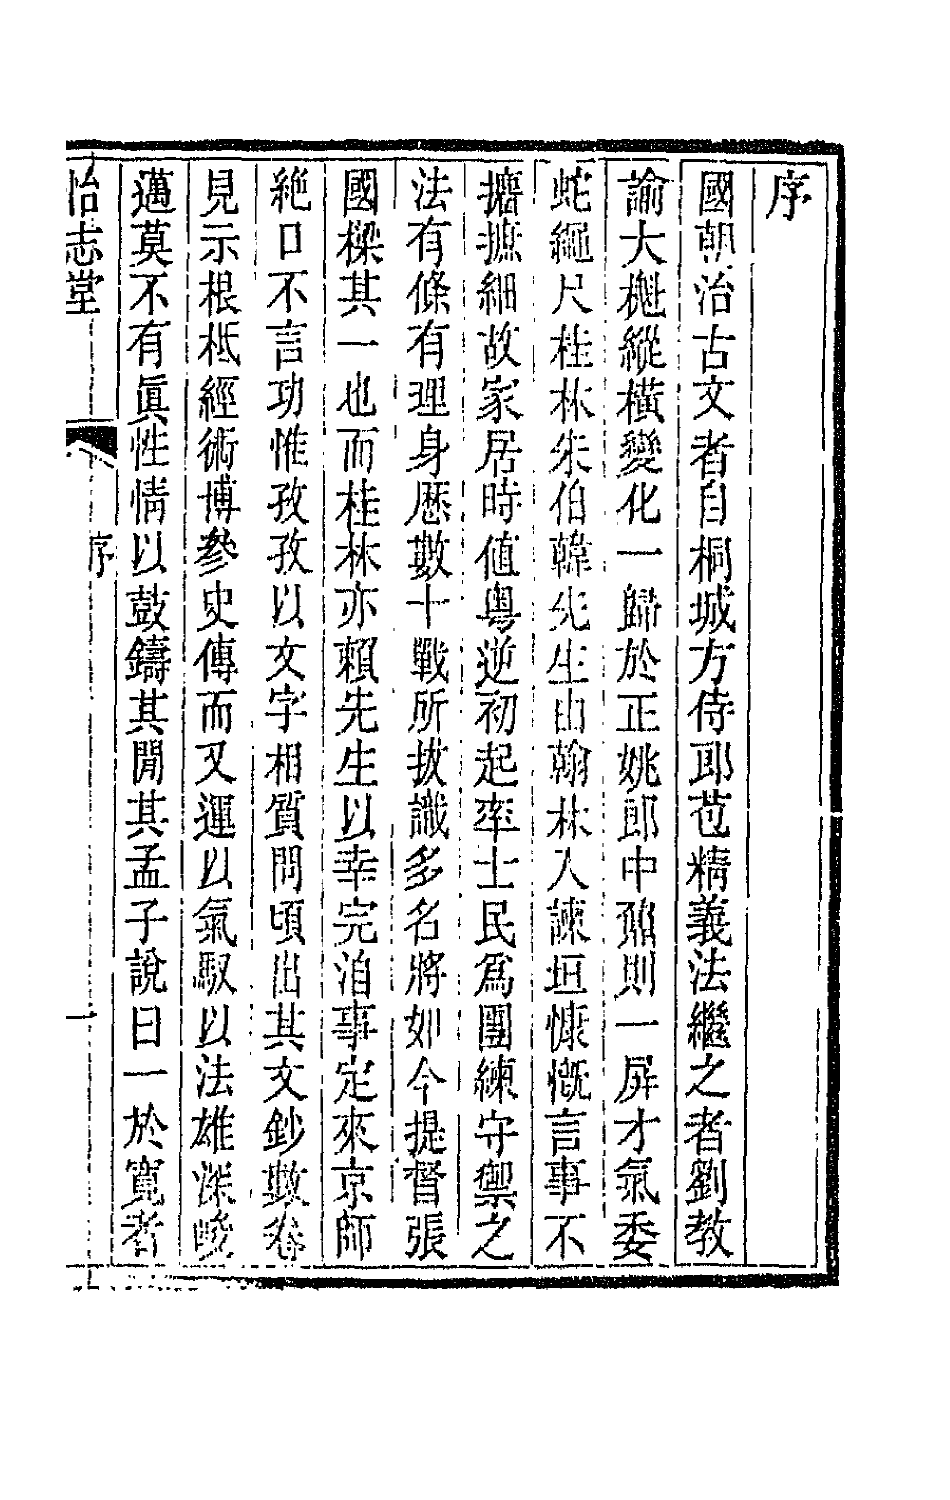 序
國朝治古文者自桐城方侍郎苞精義法繼之者劉教
諭大櫆縱橫變化一歸於正姚郎中鼐則一屏才氣委
蛇繩尺桂林朱伯韓先生由翰林入諫垣慷慨言事不
㩜摭細故家居時值粵逆初起率士民爲團練守禦之
法有條有理身歷數十戰所拔識多名將如今提督張
國樑其一也而桂林亦賴先生以幸完洎事定來京師
絶口不言功惟孜孜以文字相質問頃出其文鈔數卷
見示根柢經術博參史傳而又運以氣馭以法雄深峻
邁莫不有眞性情以鼓鑄其閒其孟子說曰一於寬者
怡志堂 序 一